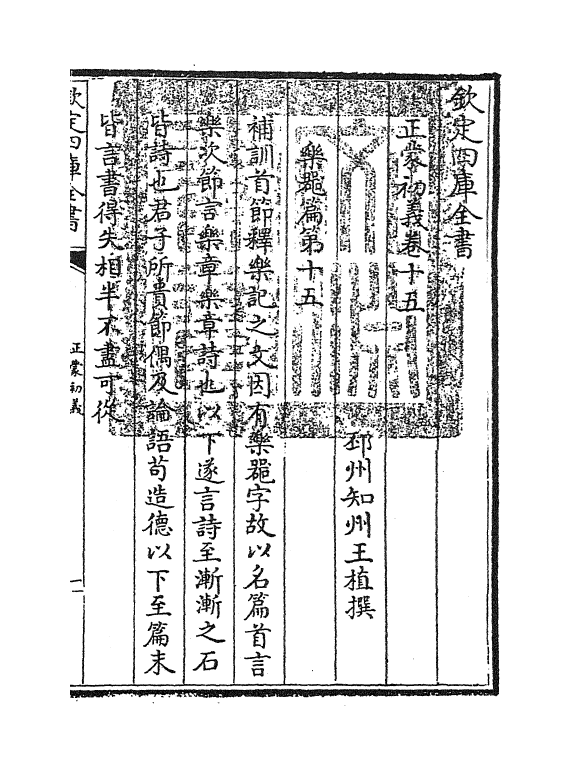 欽定四庫全書
正蒙初義卷十五
邳州知州王植撰
樂器篇第十五
補訓首節釋樂記之文因有樂器字故以名篇首言
樂次節言樂章樂章詩也以下遂言詩至漸漸之石
皆詩也君子所貴節偶及論語苟造德以下至篇末
皆言書得失相半不盡可從
欽定四庫全書
正蒙初義
一